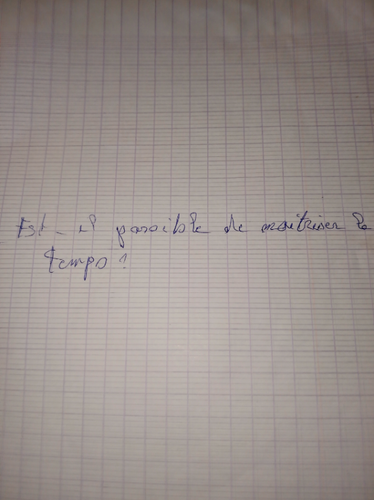 Est-il possible de maitriser le
temps?